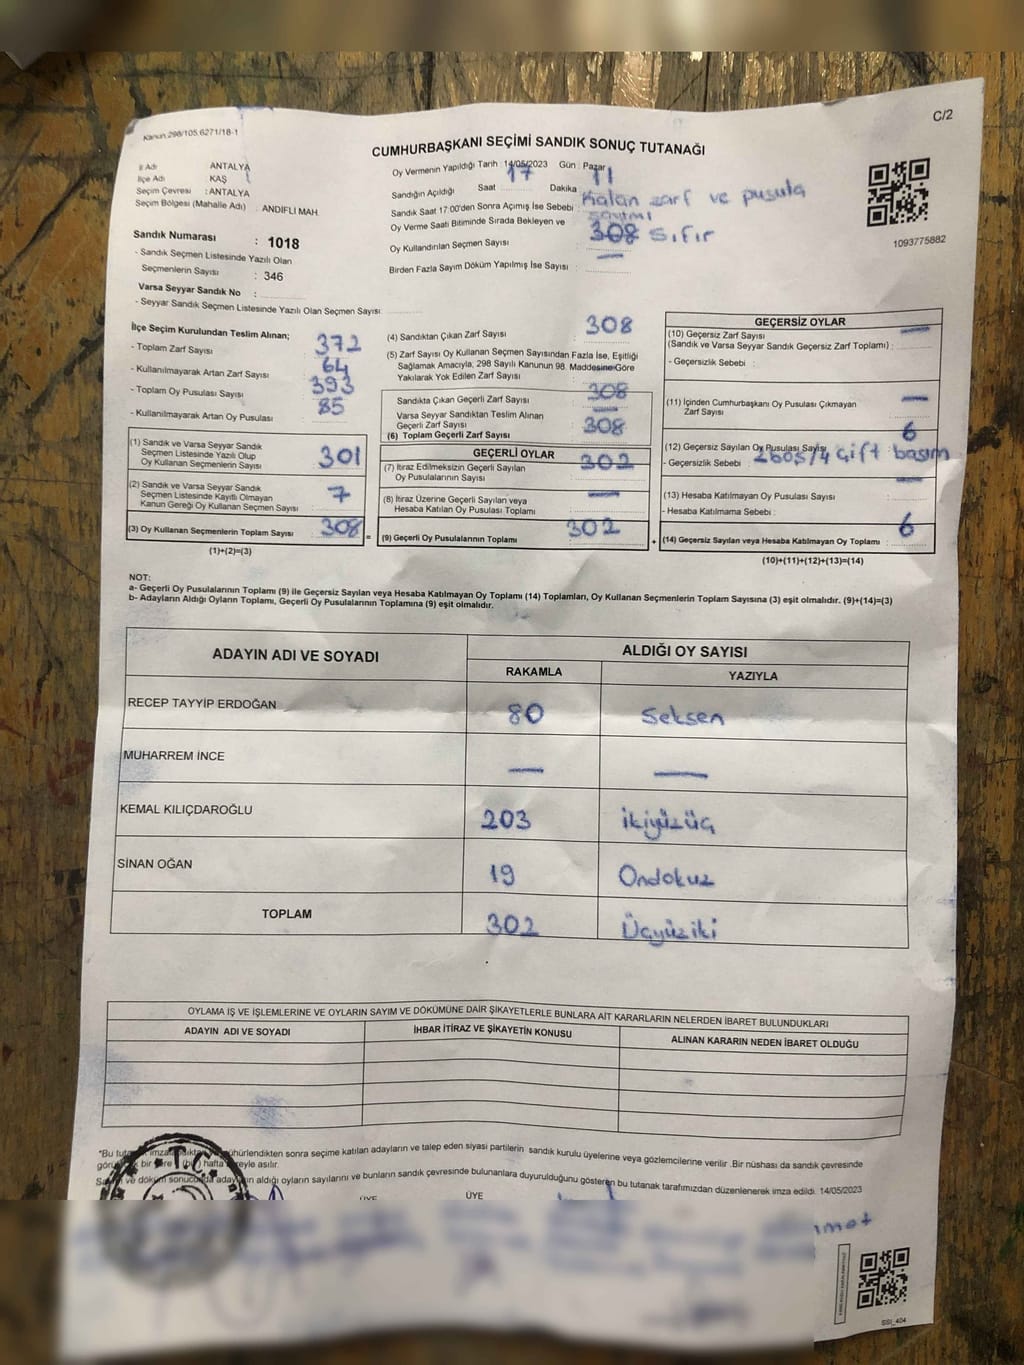 Kanun.298/105,6271/18-1
C/2
CUMHURBAŞKANI SEÇİMİ SANDIK SONUÇ TUTANAĞI
İl Adı ANTALYA
İlçe Adı KAŞ
Seçim Çevresi : ANTALYA
Seçim Bölgesi (Mahalle Adı) : ANDİFLİ MAH.
Sandık Numarası : 1018
- Sandık Seçmen Listesinde Yazılı Olan
Seçmenlerin Sayısı : 346
Varsa Seyyar Sandık No :
- Seyyar Sandık Seçmen Listesinde Yazılı Olan Seçmen Sayısı
Oy Vermenin Yapıldığı Tarih 14/05/2023 Gün : Pazar
Sandığın Açıldığı Saat 17 Dakika 11
Sandık Saat 17:00'den Sonra Açımış İse Sebebi : Kalan zarf ve pusula sayımı
Oy Verme Saati Bitiminde Sırada Bekleyen ve
Oy Kullandırılan Seçmen Sayısı 308 sıfır
Birden Fazla Sayım Döküm Yapılmış İse Sayısı : —
1093775882
İlçe Seçim Kurulundan Teslim Alınan;
- Toplam Zarf Sayısı 372
- Kullanılmayarak Artan Zarf Sayısı 64
- Toplam Oy Pusulası Sayısı 393
- Kullanılmayarak Artan Oy Pusulası 85
(1) Sandık ve Varsa Seyyar Sandık
Seçmen Listesinde Yazılı Olup
Oy Kullanan Seçmenlerin Sayısı 301
(2) Sandık ve Varsa Seyyar Sandık
Seçmen Listesinde Kayıtlı Olmayan
Kanun Gereği Oy Kullanan Seçmen Sayısı 7
(3) Oy Kullanan Seçmenlerin Toplam Sayısı 308 =
(1)+(2)=(3)
(4) Sandıktan Çıkan Zarf Sayısı 308
(5) Zarf Sayısı Oy Kullanan Seçmen Sayısından Fazla İse, Eşitliği
Sağlamak Amacıyla, 298 Sayılı Kanunun 98. Maddesine Göre
Yakılarak Yok Edilen Zarf Sayısı
Sandıkta Çıkan Geçerli Zarf Sayısı 308
Varsa Seyyar Sandıktan Teslim Alınan
Geçerli Zarf Sayısı —
(6) Toplam Geçerli Zarf Sayısı 308
GEÇERLİ OYLAR
(7) İtiraz Edilmeksizin Geçerli Sayılan
Oy Pusulalarının Sayısı 302
(8) İtiraz Üzerine Geçerli Sayılan veya
Hesaba Katılan Oy Pusulası Toplamı —
(9) Geçerli Oy Pusulalarının Toplamı 302 +
GEÇERSİZ OYLAR
(10) Geçersiz Zarf Sayısı —
(Sandık ve Varsa Seyyar Sandık Geçersiz Zarf Toplamı) :
- Geçersizlik Sebebi :
(11) İçinden Cumhurbaşkanı Oy Pusulası Çıkmayan
Zarf Sayısı —
(12) Geçersiz Sayılan Oy Pusulası Sayısı 6
- Geçersizlik Sebebi : 2 boş/4 çift basım
(13) Hesaba Katılmayan Oy Pusulası Sayısı —
- Hesaba Katılmama Sebebi :
(14) Geçersiz Sayılan veya Hesaba Katılmayan Oy Toplamı : 6
(10)+(11)+(12)+(13)=(14)
NOT:
a- Geçerli Oy Pusulalarının Toplamı (9) ile Geçersiz Sayılan veya Hesaba Katılmayan Oy Toplamı (14) Toplamları, Oy Kullanan Seçmenlerin Toplam Sayısına (3) eşit olmalıdır. (9)+(14)=(3)
b- Adayların Aldığı Oyların Toplamı, Geçerli Oy Pusulalarının Toplamına (9) eşit olmalıdır.
ADAYIN ADI VE SOYADI ALDIĞI OY SAYISI
RAKAMLA YAZIYLA
RECEP TAYYİP ERDOĞAN 80 Seksen
MUHARREM İNCE — —
KEMAL KILIÇDAROĞLU 203 ikiyüzüç
SİNAN OĞAN 19 Ondokuz
TOPLAM 302 Üçyüziki
OYLAMA İŞ VE İŞLEMLERİNE VE OYLARIN SAYIM VE DÖKÜMÜNE DAİR ŞİKAYETLERLE BUNLARA AİT KARARLARIN NELERDEN İBARET BULUNDUKLARI
ADAYIN ADI VE SOYADI İHBAR İTİRAZ VE ŞİKAYETİN KONUSU ALINAN KARARIN NEDEN İBARET OLDUĞU
*Bu mühürlendikten sonra seçime katılan adayların ve talep eden siyasi partilerin sandık kurulu üyelerine veya gözlemcilerine verilir .Bir nüshası da sandık çevresinde
bir yere (bir) hafta asılır.
ve döküm sonucunda aldığı oyların sayılarını ve bunların sandık çevresinde bulunanlara duyurulduğunu gösteren bu tutanak tarafımızdan düzenlenerek imza edildi. 14/05/2023
T.C.
ÜYE ÜYE
SSI_404